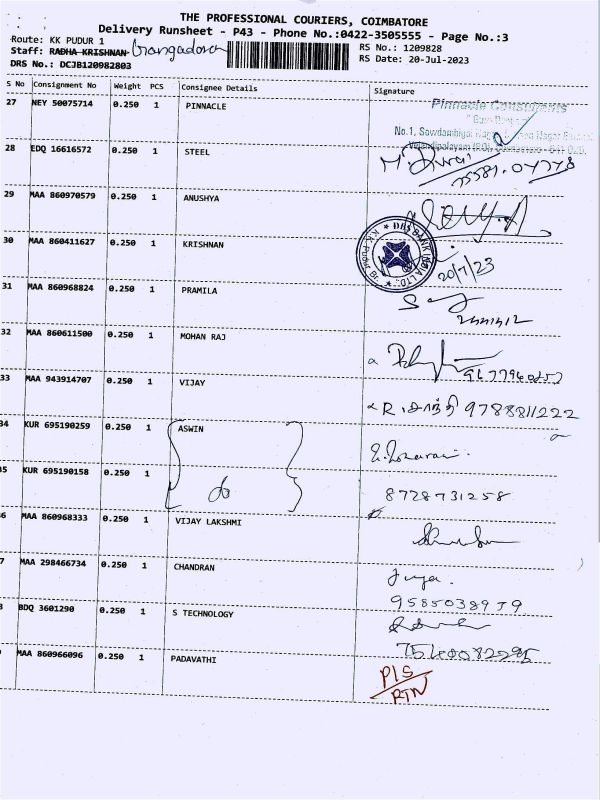 THE PROFESSIONAL COURIERS, COIMBATORE
Delivery Runsheet - P43 - Phone No.:0422-3505555 - Page No.:3
Route: KK PUDUR 1
RS No.: 1209828
Staff: RADHA KRISHNAN
RS Date: 20-Jul-2023
DRS No.: DCJB120982803
S No Consignment No Weight PCS Consignee Details Signature
27 NEY 50075714 0.250 1 PINNACLE
Pinnacle
No.1,
28 EDQ 16616572 0.250 1 STEEL
29 MAA 860970579 0.250 1 ANUSHYA
30 MAA 860411627 0.250 1 KRISHNAN
DBS BANK INDIA LTD.
20/7/23
31 MAA 860968824 0.250 1 PRAMILA
32 MAA 860611500 0.250 1 MOHAN RAJ
33 MAA 943914707 0.250 1 VIJAY
R. சாந்தி 9788811222
34 KUR 695190259 0.250 1 ASWIN
35 KUR 695190158 0.250 1
do
8728731258
6 MAA 860968333 0.250 1 VIJAY LAKSHMI
7 MAA 298466734 0.250 1 CHANDRAN
9585038979
8 BDQ 3601290 0.250 1 S TECHNOLOGY
MAA 860966096 0.250 1 PADAVATHI
P/S
RTN